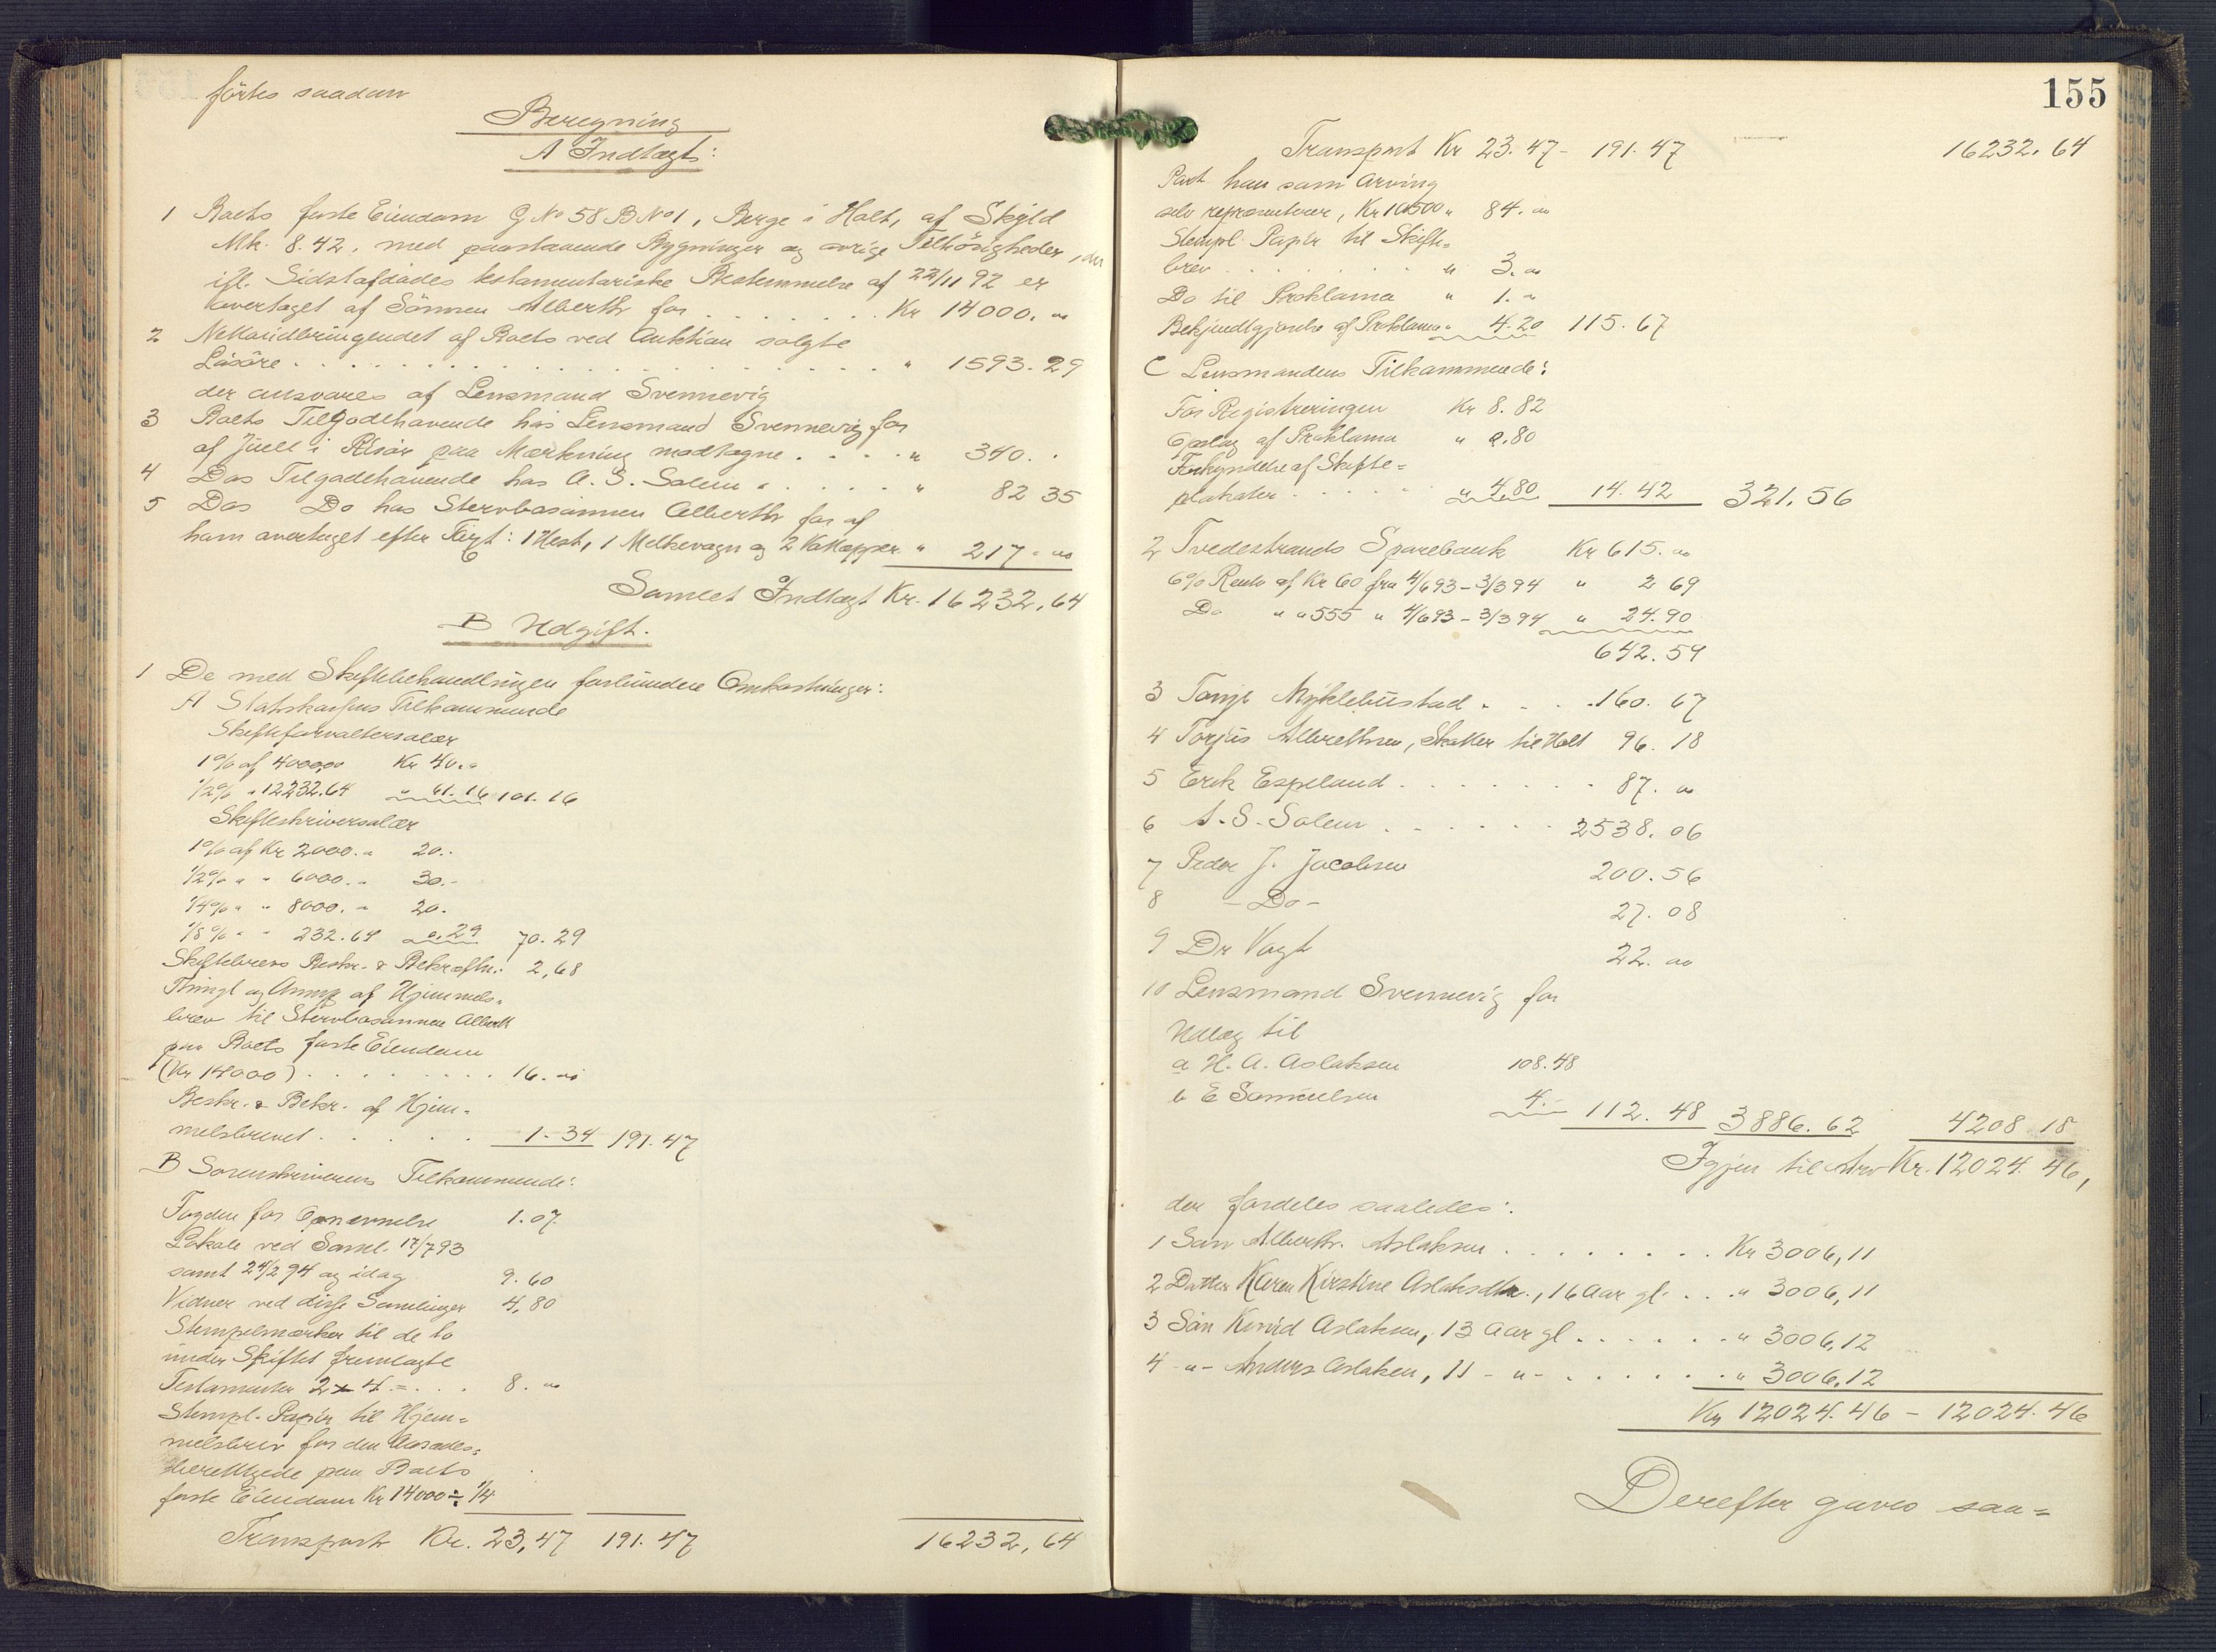 førtes saadan
Beregning
A Indtægt:
1 Boets faste Eiendom G No 58 B No 1, Berge i Holt, af Skyld
Mk. 8.42, med paastaaende Bygninger og øvrige Tilhørigheder, der
ifl. Sidstafdødes testamentariske Bestemmelse af 22/11 92 er
overtaget af Sønnen Alberth for . . . . . . . Kr 14000. "
2 Nettoudbringendet af Boets ved Auktion solgte
Løsøre . . . . . . . . . . . . . . . . " 1593.29
der ansvares af Lensmand Svennevig
3 Boets Tilgodehavende hos Lensmand Svennevig for
af Juell i Risør paa Mærkning modtagne . . . . " 340. .
4 Dos Tilgodehavende hos A. S. Solem . . . . . " 82 35
5 Dos Do hos Stervbosønnen Alberth for af
ham overtaget efter Taxt: 1 Hest, 1 Melkevogn og 2 " 217. "
Samlet Indtægt Kr. 16232,64
B Udgift.
1 De med Skiftebehandlingen forbundne Omkostninger:
A Statskassens Tilkommende
Skifteforvaltersalær
1% af 4000,00 Kr 40. "
1/2% " 12232.64 " 61.16 101.16
Skifteskriversalær
1% af Kr 2000. " 20. "
1/2% " " 6000. " 30. -
1/4% " " 8000. " 20.
1/8% " " 232.64 0.29 70.29
Skiftebrevs Beskr. & Bekræftn.: 2,68
Thingl og Anmp af Hjemmels-
brev til Stervbosønnen Alberth
paa Boets faste Eiendom
(Kr 14000) . . . . . . . . 16. "
Beskr. & Bekr. af Hjem-
melsbrevet . . . . . 1.34 191.47
B Sorenskriverens Tilkommende:
Fogden for Opnævnelse 1.07
Lokale ved Saml. 17/7 93
samt 24/2 94 og idag 9.60
Vidner ved disse Samlinger 4,80
Stempelmærker til de to
under Skiftet fremlagte
Testamenter 2 x 4 = . . . 8. "
Stempl. Papir til Hjem-
melsbrev for den Aasædes-
berettigede paa Boets
faste Eiendom Kr 14000 ÷ 1/4
Transport Kr. 23,47 191.47 16232,64
155
Transport Kr 23.47 - 191.47 16232.64
Part han som Arving
selv repræsenterer, Kr 10500 " 84. "
Stempl. Papir til Skifte-
brev . . . . . . . . " 3. "
Do til Proklama " 1. "
Bekjendtgjørelse af Proklama " 4.20 115.67
C Lensmandens Tilkommende:
For Registreringen Kr 8.82
Opslag af Proklama " 0.80
Forkyndelse af Skifte-
plakater . . . . . " 4.80 14.42 321.56
2 Tvedestrands Sparebank Kr 615. "
6% Rente af Kr 60 fra 4/6 93 - 3/3 94 " 2 69
Do " " 555 " 4/6 93 - 3/3 94 " 24.90
642.59
3 Tonje Myklebustad . . . . 160. 67
4 Torjus Albretsen, Skatter til Holt 96. 18
5 Erik Espeland . . . . . . . 87. "
6 A. S. Solem . . . . . . 2538. 06
7 Peder J. Jacobsen 200.56
8 - Do - 27.08
9 Dr Vogt 22. "
10 Lensmand Svennevig for
Udlæg til
a H. A. Aslaksen 108.48
b E Samuelsen 4. - 112.48 3886.62 4208 18
Igjen til Arv Kr. 12024.46,
der fordeles saaledes:
1 Søn Alberth Aslaksen . . . . . . . . Kr 3006,11
2 Datter Karen Kirstine Aslaksdtr., 16 Aar gl . . . " 3006,11
3 Søn Knud Aslaksen, 13 Aar gl . . . . . . " 3006,12
4 -"- Anders Aslaksen, 11 -"- . . . . . . " 3006,12
Kr 12024.46 - 12024.46
Derefter gaves saa-